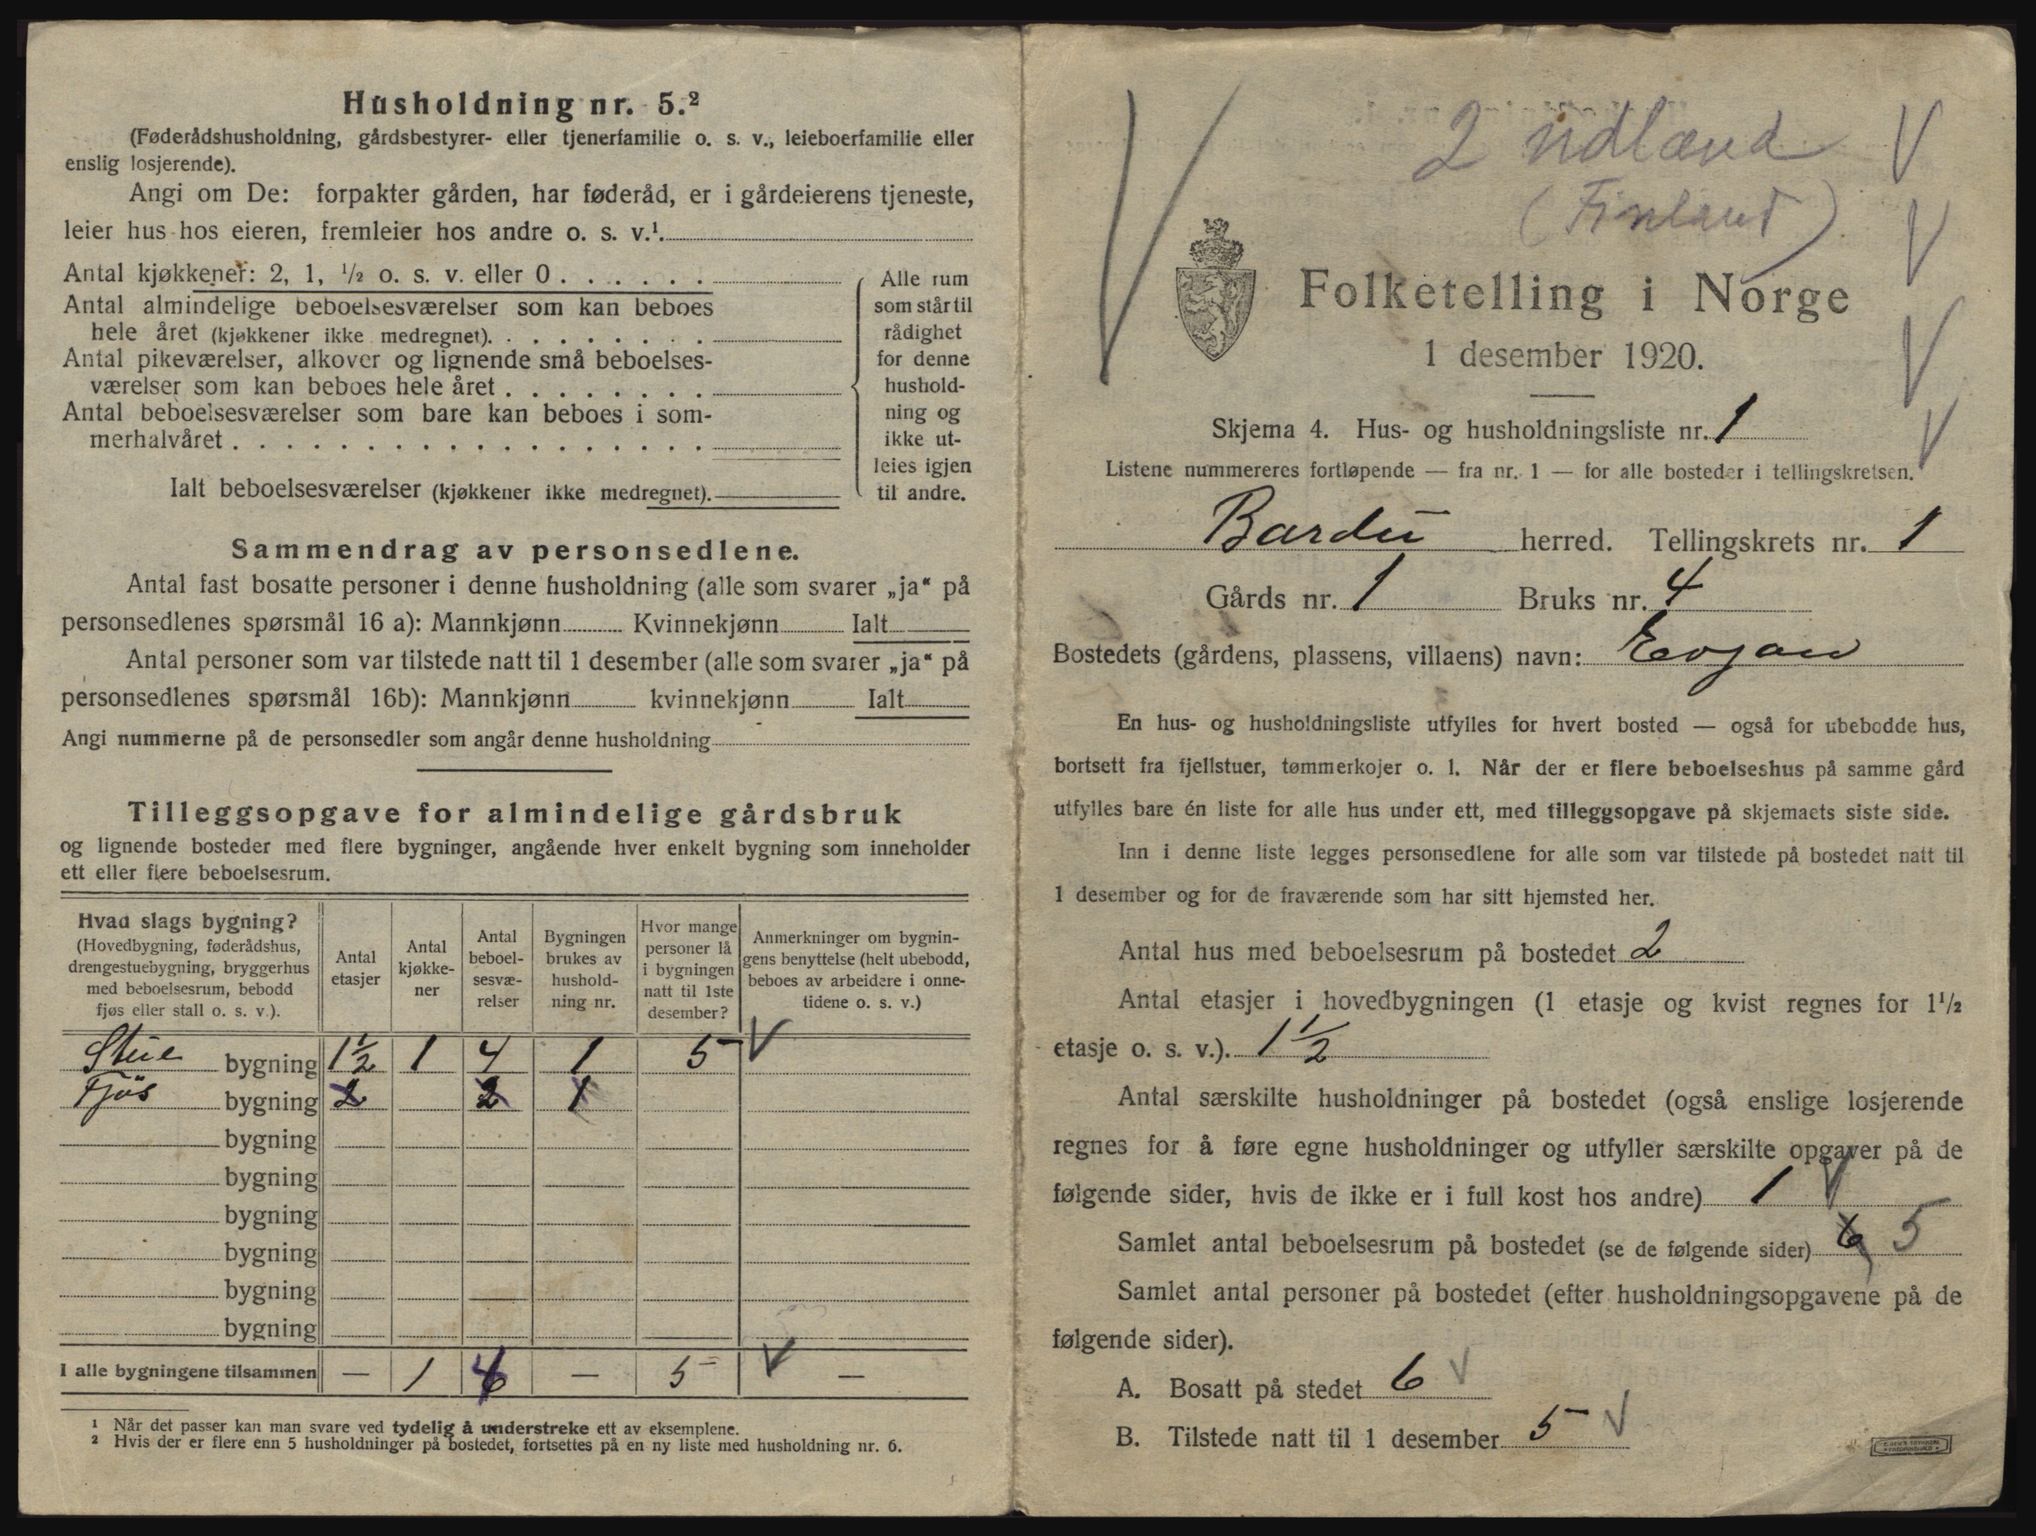 Husholdning nr. 5.²
(Føderådshusholdning, gårdsbestyrer- eller tjenerfamilie o. s. v., leieboerfamilie eller
enslig losjerende).
Angi om De: forpakter gården, har føderåd, er i gårdeierens tjeneste,
leier hus hos eieren, fremleier hos andre o. s. v.¹.
Antal kjøkkener: 2, 1, ½ o. s. v. eller 0 . . . . . .
Antal almindelige beboelsesværelser som kan beboes
hele året (kjøkkener ikke medregnet). . . . . . . . .
Antal pikeværelser, alkover og lignende små beboelses-
værelser som kan beboes hele året . . . . . . . .
Antal beboelsesværelser som bare kan beboes i som-
merhalvåret . . . . . . . . . . . . . . . . . .
Ialt beboelsesværelser (kjøkkener ikke medregnet).
Alle rum
som står til
rådighet
for denne
hushold-
ning og
ikke ut-
leies igjen
til andre.
Sammendrag av personsedlene.
Antal fast bosatte personer i denne husholdning (alle som svarer „ja“ på
personsedlenes spørsmål 16 a): Mannkjønn Kvinnekjønn Ialt
Antal personer som var tilstede natt til 1 desember (alle som svarer „ja“ på
personsedlenes spørsmål 16b): Mannkjønn kvinnekjønn Ialt
Angi nummerne på de personsedler som angår denne husholdning
Tilleggsopgave for almindelige gårdsbruk
og lignende bosteder med flere bygninger, angående hver enkelt bygning som inneholder
ett eller flere beboelsesrum.
Hvad slags bygning?
(Hovedbygning, føderådshus,
drengestuebygning, bryggerhus
med beboelsesrum, bebodd
fjøs eller stall o. s. v.).
Antal
etasjer
Antal
kjøkke-
ner
Antal
beboel-
sesvæ-
relser
Bygningen
brukes av
hushold-
ning nr.
Hvor mange
personer lå
i bygningen
natt til 1ste
desember?
Anmerkninger om bygnin-
gens benyttelse (helt ubebodd,
beboes av arbeidere i onne-
tidene o. s. v.)
Stue bygning 1½ 1 4 1 5 V
Fjøs bygning 2 2 1
bygning
bygning
bygning
bygning
bygning
bygning
I alle bygningene tilsammen — 1 4 — 5 V —
¹ Når det passer kan man svare ved tydelig å understreke ett av eksemplene.
² Hvis der er flere enn 5 husholdninger på bostedet, fortsettes på en ny liste med husholdning nr. 6.
2 udland
(Finland)
Folketelling i Norge
1 desember 1920.
Skjema 4. Hus- og husholdningsliste nr. 1
Listene nummereres fortløpende — fra nr. 1 — for alle bosteder i tellingskretsen.
Bardu herred. Tellingskrets nr. 1
Gårds nr. 1 Bruks nr. 4
Bostedets (gårdens, plassens, villaens) navn: Evjan
En hus- og husholdningsliste utfylles for hvert bosted — også for ubebodde hus,
bortsett fra fjellstuer, tømmerkojer o. l. Når der er flere beboelseshus på samme gård
utfylles bare én liste for alle hus under ett, med tilleggsopgave på skjemaets siste side.
Inn i denne liste legges personsedlene for alle som var tilstede på bostedet natt til
1 desember og for de fraværende som har sitt hjemsted her.
Antal hus med beboelsesrum på bostedet 2
Antal etasjer i hovedbygningen (1 etasje og kvist regnes for 1½
etasje o. s. v.). 1½
Antal særskilte husholdninger på bostedet (også enslige losjerende
regnes for å føre egne husholdninger og utfyller særskilte opgaver på de
følgende sider, hvis de ikke er i full kost hos andre) 1 V
Samlet antal beboelsesrum på bostedet (se de følgende sider) 6 5
Samlet antal personer på bostedet (efter husholdningsopgavene på de
følgende sider).
A. Bosatt på stedet 6 V
B. Tilstede natt til 1 desember 5 V